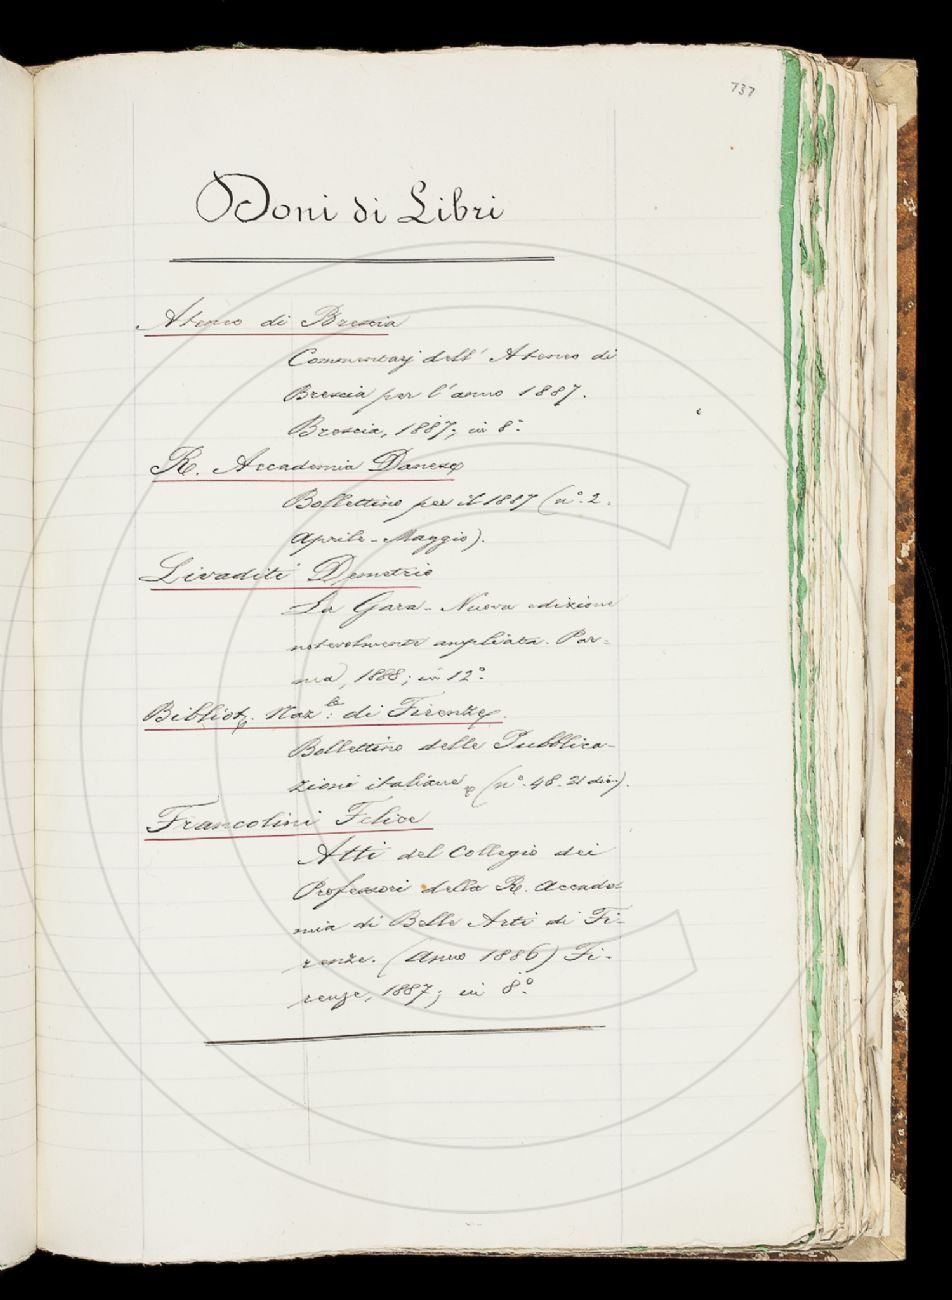 737
Doni di Libri
Ateneo di Brescia
Commentarj dell' Ateneo di
Brescia per l'anno 1887.
Brescia, 1887; in 8.°
R. Accademia Danese
Bollettino per il 1887 (n.° 2.
Aprile - Maggio).
Livaditi Demetrio
La Gara - Nuova edizione
notevolmente ampliata. Par=
ma, 1888; in 12.°
Bibliot. Naz.le di Firenze.
Bollettino delle Pubblica-
zioni italiane (n.° 48. 21 dic.).
Francolini Felice
Atti del Collegio dei
Professori della R. Accade
mia di Belle Arti di Fi-
renze. (Anno 1886) Fi-
renze, 1887; in 8.°